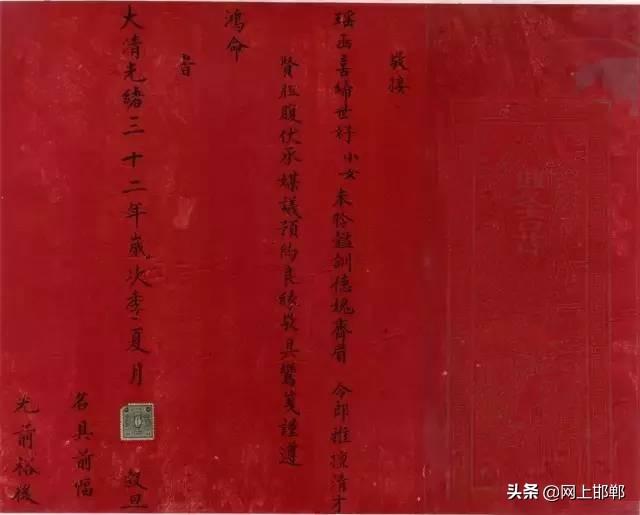 敬接
瑶函喜締世好小女未聆訓德媿齊眉 令郎雅擅清才
賢袒腹伏承媒議預約良緣敬具鸞箋謹遵
鴻命
旨
大清光緒三十二年歲次季夏月 穀旦
名具前幅
光前裕後
头条 @网上邯郸